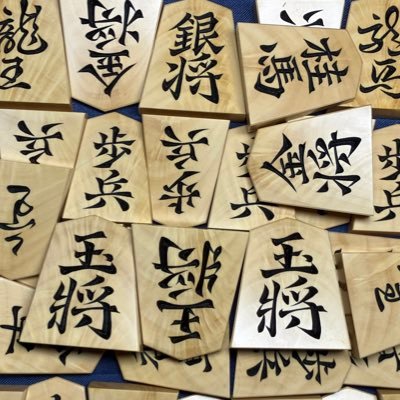 龍王
金将
銀将
桂馬
歩兵
歩兵
歩兵
歩兵
金将
歩兵
玉将
玉将
玉将